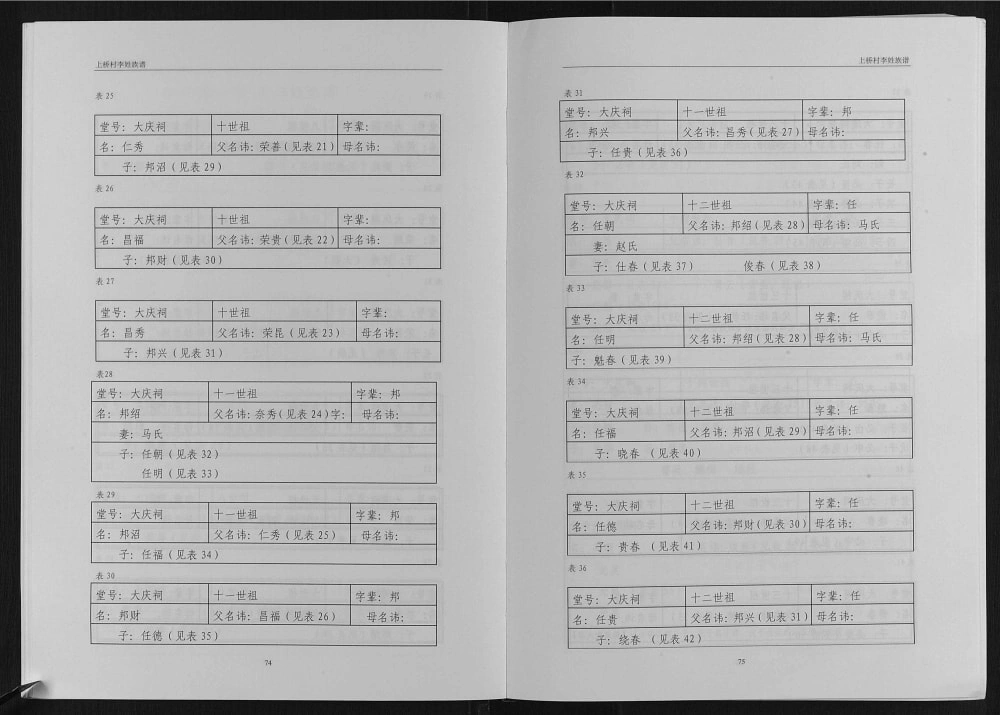 上桥村李姓族谱
表 25
堂号: 大庆祠 十世祖 字辈:
名: 仁秀 父名讳: 荣善(见表 21) 母名讳:
子: 邦沼(见表 29)
表 26
堂号: 大庆祠 十世祖 字辈:
名: 昌福 父名讳: 荣贵(见表 22) 母名讳:
子: 邦财(见表 30)
表 27
堂号: 大庆祠 十世祖 字辈:
名: 昌秀 父名讳: 荣昆(见表 23) 母名讳:
子: 邦兴(见表 31)
表28
堂号: 大庆祠 十一世祖 字辈: 邦
名: 邦绍 父名讳: 奈秀(见表 24)字: 母名讳:
妻: 马氏
子: 任朝(见表 32)
任明(见表 33)
表 29
堂号: 大庆祠 十一世祖 字辈: 邦
名: 邦沼 父名讳: 仁秀(见表 25) 母名讳:
子: 任福(见表 34)
表 30
堂号: 大庆祠 十一世祖 字辈: 邦
名: 邦财 父名讳: 昌福(见表 26) 母名讳:
子: 任德(见表 35)
74
上桥村李姓族谱
表 31
堂号: 大庆祠 十一世祖 字辈: 邦
名: 邦兴 父名讳: 昌秀(见表 27) 母名讳:
子: 任贵(见表 36)
表 32
堂号: 大庆祠 十二世祖 字辈: 任
名: 任朝 父名讳: 邦绍(见表 28) 母名讳: 马氏
妻: 赵氏
子: 仕春(见表 37) 俊春(见表 38)
表 33
堂号: 大庆祠 十二世祖 字辈: 任
名: 任明 父名讳: 邦绍(见表 28) 母名讳: 马氏
子: 魁春(见表 39)
表 34
堂号: 大庆祠 十二世祖 字辈: 任
名: 任福 父名讳: 邦沼(见表 29) 母名讳:
子: 晓春 (见表 40)
表 35
堂号: 大庆祠 十二世祖 字辈: 任
名: 任德 父名讳: 邦财(见表 30) 母名讳:
子: 贵春 (见表 41)
表 36
堂号: 大庆祠 十二世祖 字辈: 任
名: 任贵 父名讳: 邦兴(见表 31) 母名讳:
子: 绕春 (见表 42)
75